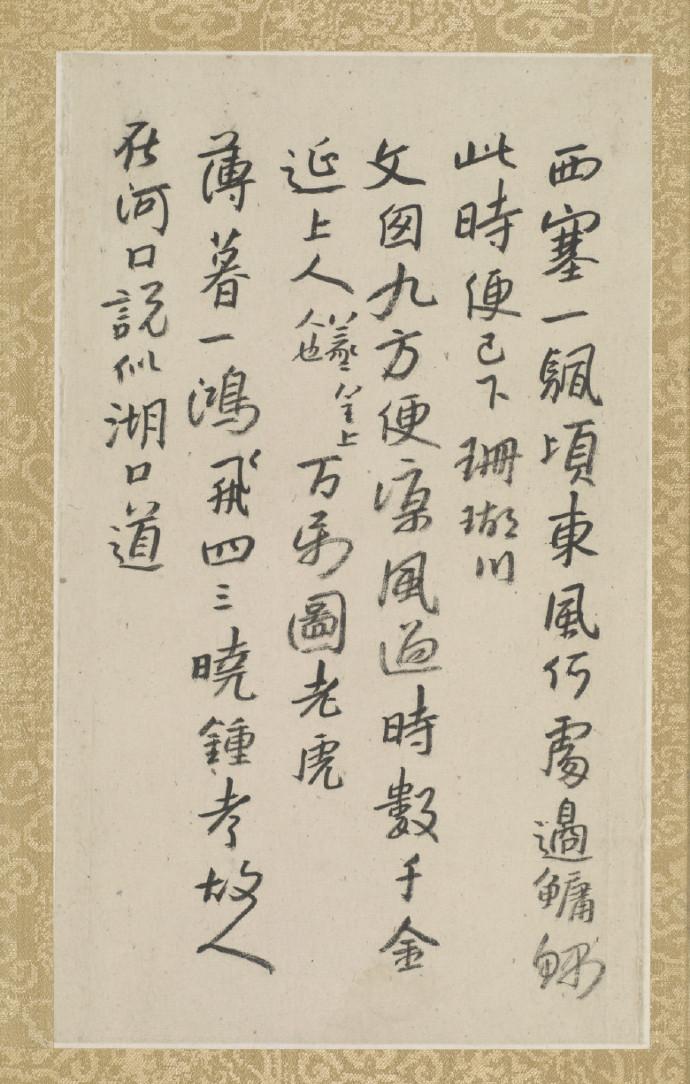 西塞一颿頃東風何處過鱅
此時便已下珊瑚川
文囪九方便凉風過時數千金
延上人 人也 上 万 圖老虎
薄暮一鴻飛四三曉鍾考故人
在河口說似湖口道